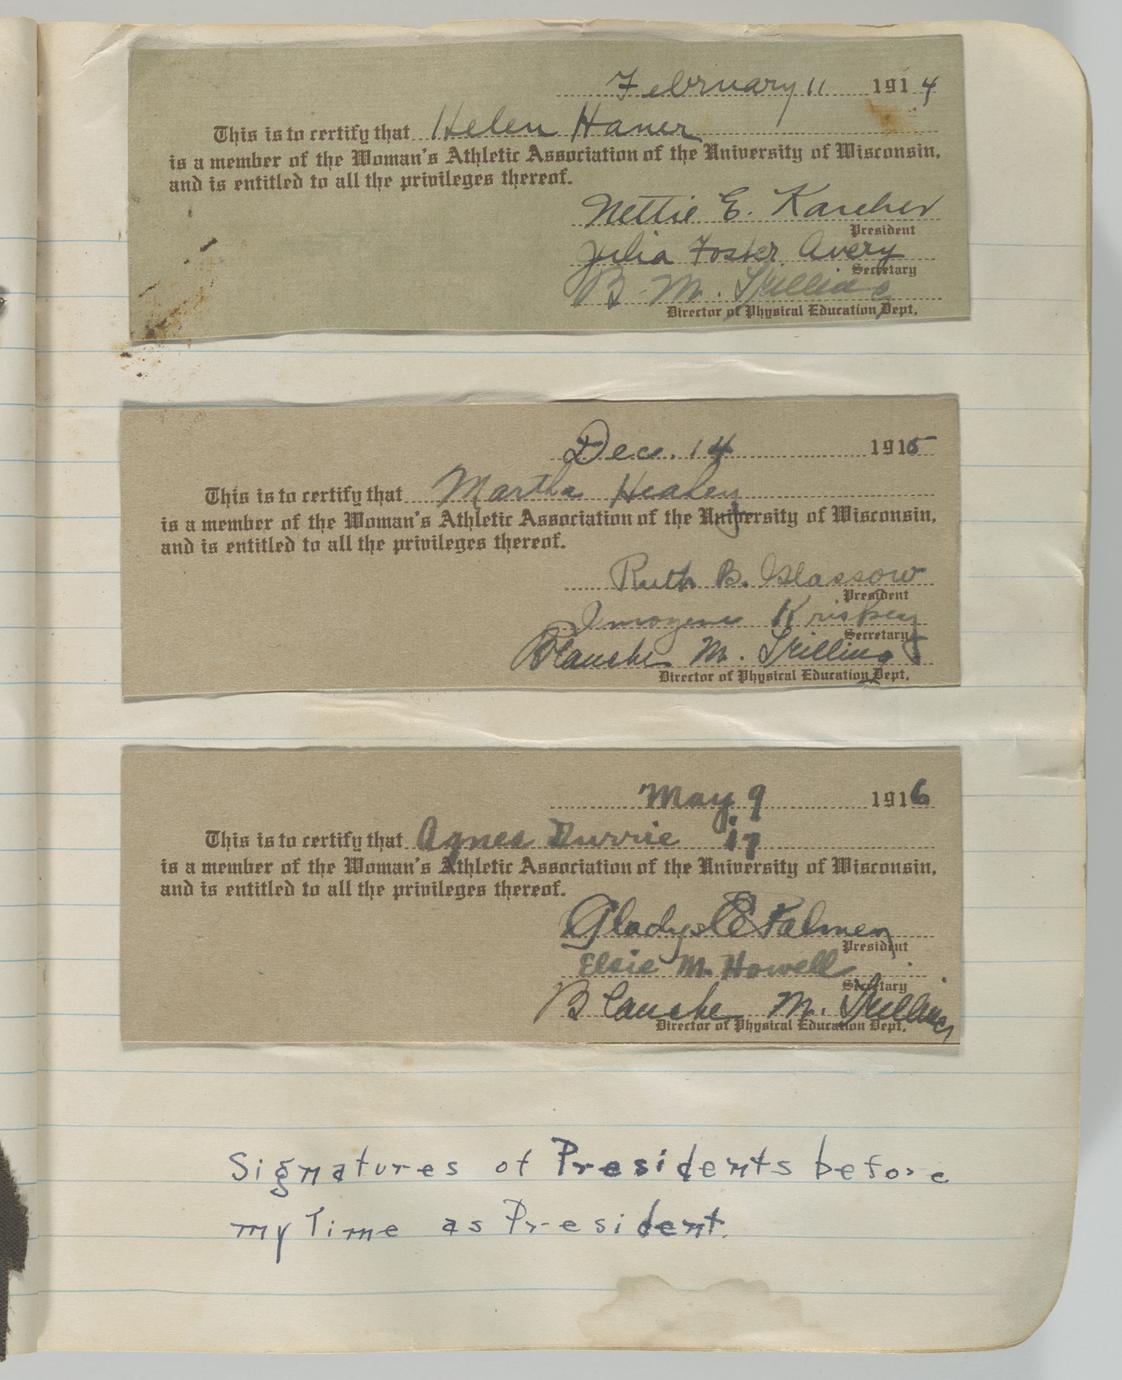 February 11 1914
This is to certify that Helen Haner
is a member of the Woman's Athletic Association of the University of Wisconsin,
and is entitled to all the privileges thereof.
Nettie E. Karcher
President
Julia Foster Avery
Secretary
B. M. Trilling
Director of Physical Education Dept.
Dec. 14 1915
This is to certify that Martha Healey
is a member of the Woman's Athletic Association of the University of Wisconsin,
and is entitled to all the privileges thereof.
Ruth B. Glassow
President
Imogene Kriskey
Secretary
Blanche M. Trilling
Director of Physical Education Dept.
May 9 1916
This is to certify that Agnes Durrie 17
is a member of the Woman's Athletic Association of the University of Wisconsin,
and is entitled to all the privileges thereof.
Gladys E Palmer
President
Elsie M. Howell
Secretary
Blanche M. Trilling
Director of Physical Education Dept.
Signatures of Presidents before
my Time as President.